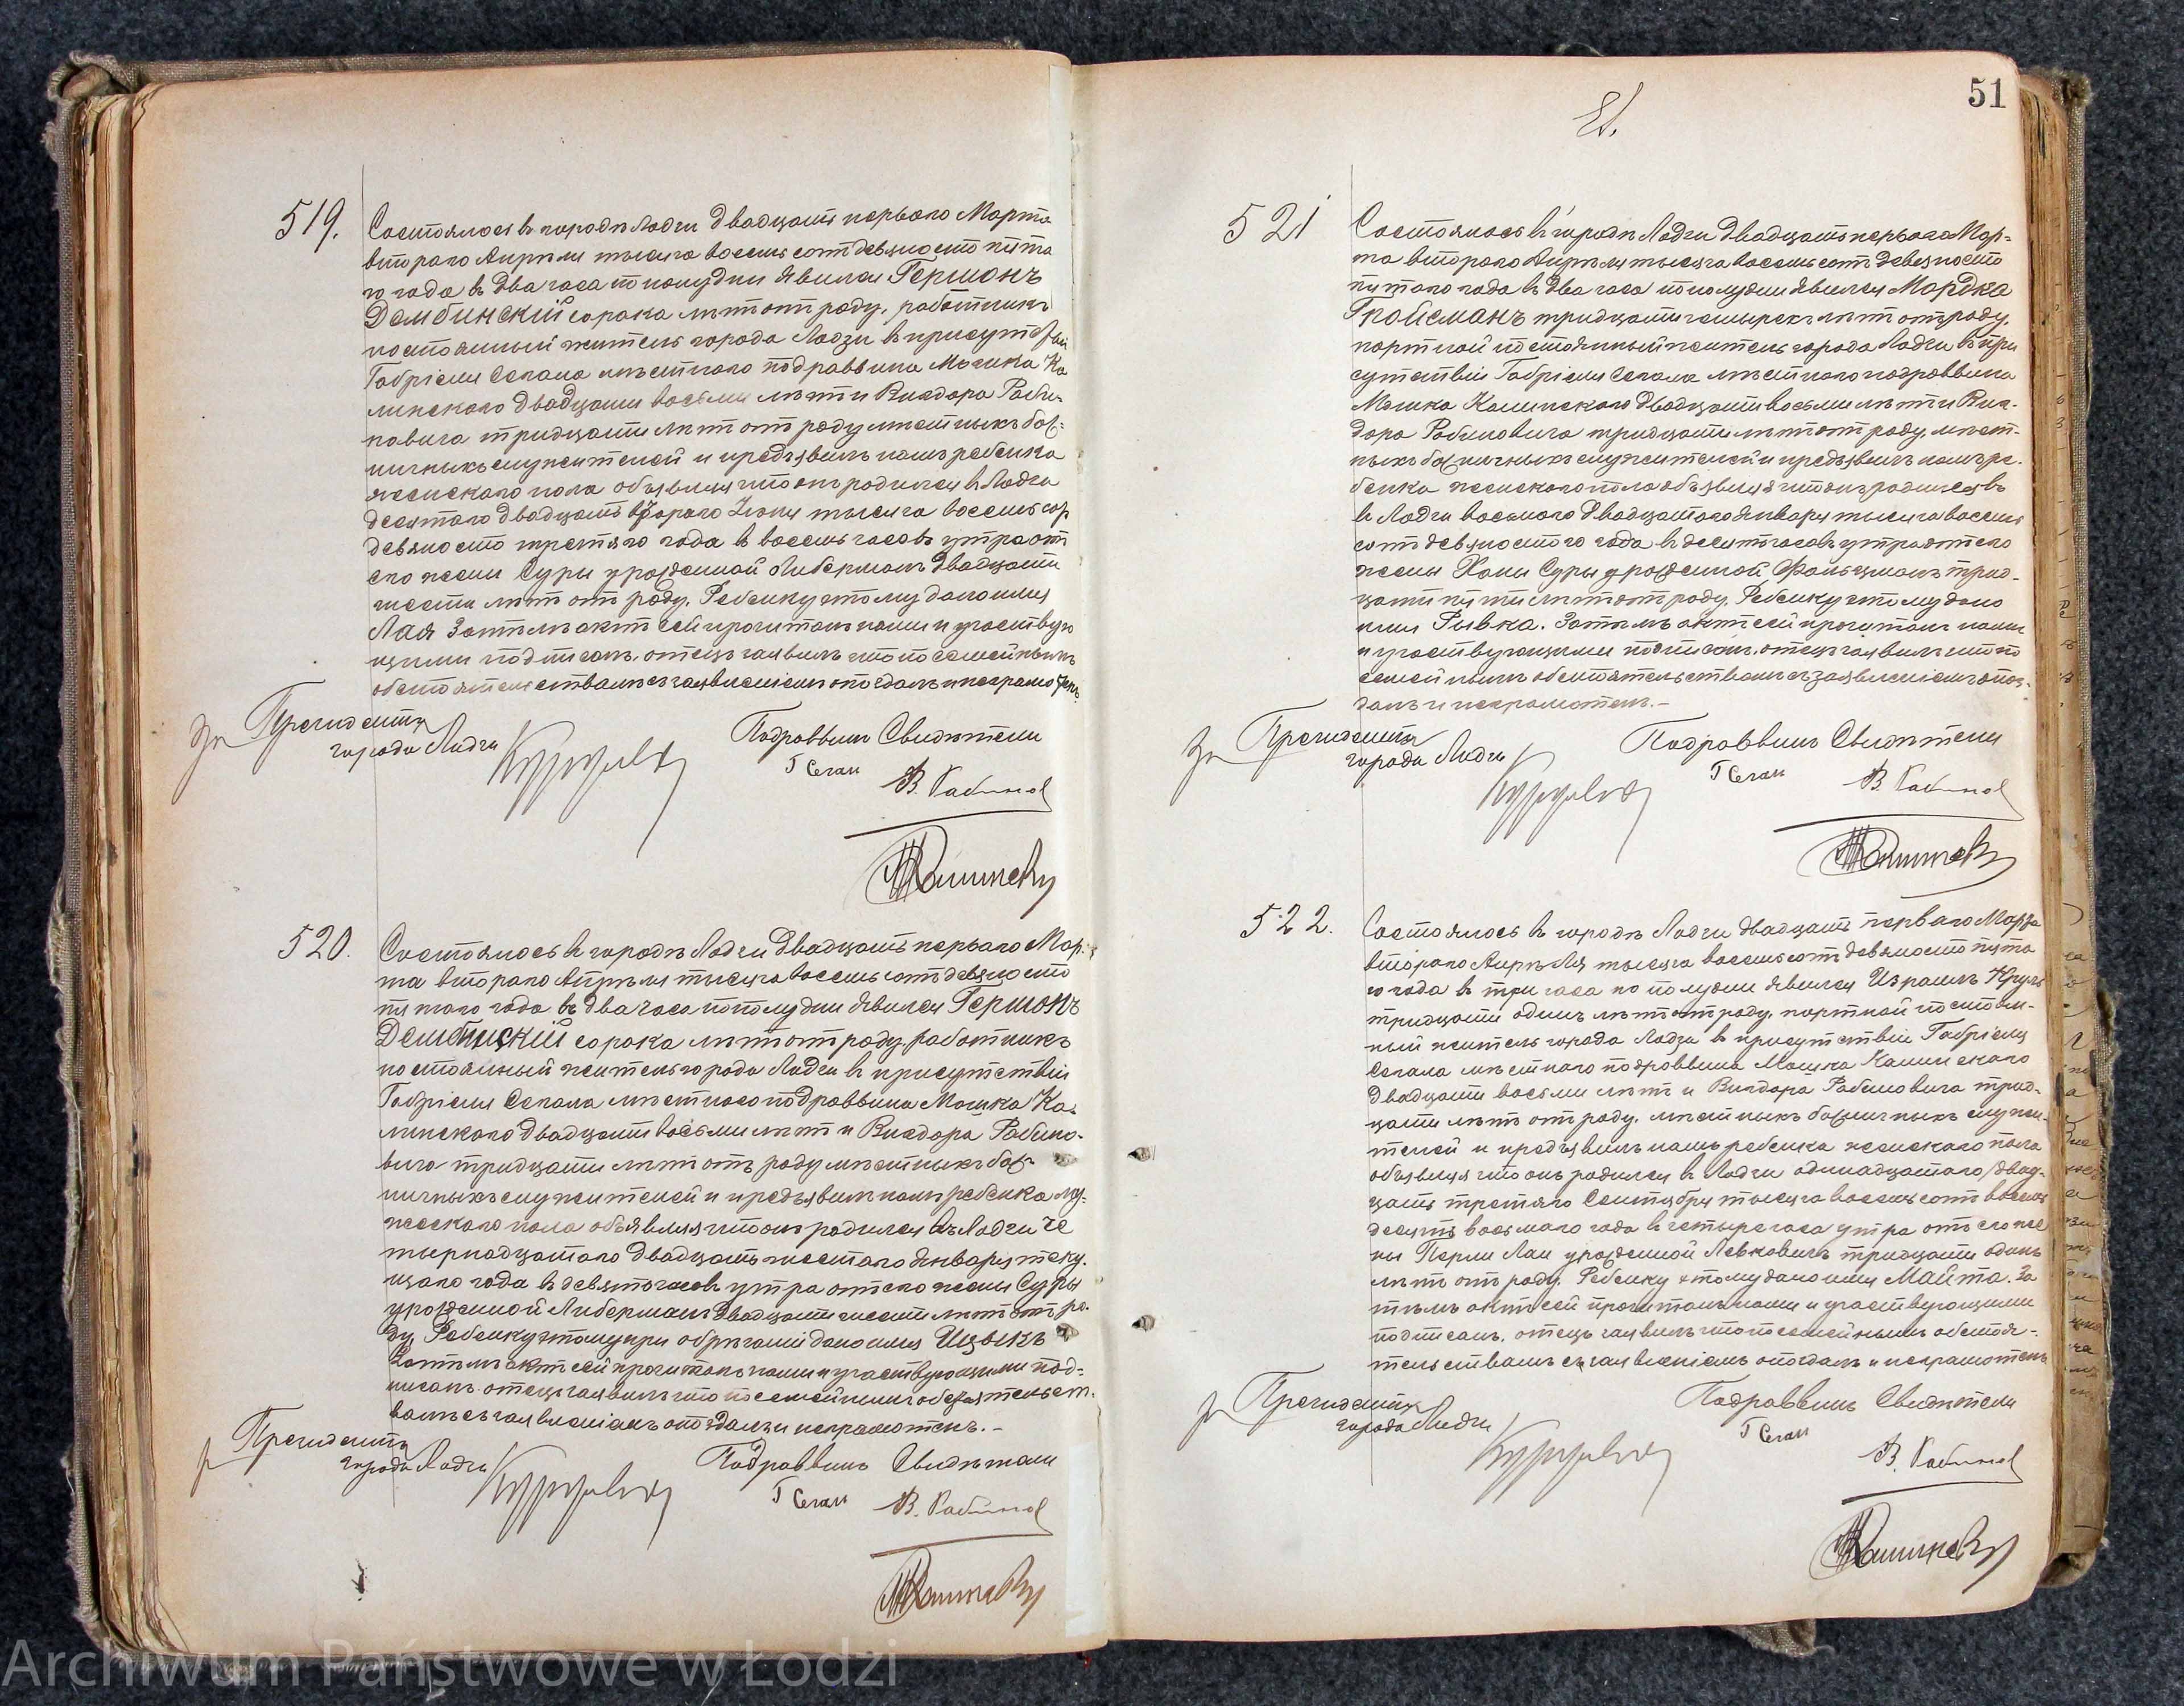 519.
Состоялось въ городѣ Лодзи двадцать перваго Марта
втораго Апрѣля тысяча восемь сотъ девяносто пята
го года въ два часа по полудни Явился Гершонъ
Дембинскій сорока лѣтъ отъ роду, работникъ
постоянный житель города Лодзи въ присутствіи
Габріеля Сегала мѣстнаго подраввина Мошка Ка
линскаго двадцати восьми лѣтъ и Вигдора Раби-
новича тридцати лѣтъ отъ роду мѣстныхъ бож-
ничныхъ служителей и предъявилъ намъ ребенка
женскаго пола объявляя что онъ родился въ Лодзи
десятаго двадцать втораго Іюня тысяча восемь сот
девяносто третяго года въ восемь часовъ утра отъ
его жены Суры урожденной Либерманъ двадцати
шести лѣтъ отъ роду. Ребенку этому дано имя
Лая Затѣмъ актъ сей прочитанъ нами и участвую
щими подписанъ, отецъ заявилъ что по семейнымъ
обстоятельствамъ съ заявленіемъ опоздалъ и неграмотенъ
За Президента
города Лодзи
Подраввинъ Свидѣтели
Г Сегал
В. Рабинов
520.
Состоялось въ городѣ Лодзи двадцать перваго Мар-
та втораго Апрѣля тысяча восемь сотъ девяносто
пятаго года въ два часа по полудни Явился Гершонъ
Дембинскій сорока лѣтъ отъ роду, работникъ
постоянный житель города Лодзи въ присутствіи
Габріеля Сегала мѣстнаго подраввина Мошка Ка-
линскаго двадцати восьми лѣтъ и Вигдора Рабино-
вича тридцати лѣтъ отъ роду мѣстныхъ бож-
ничныхъ служителей и предъявилъ намъ ребенка му-
жескаго пола объявляя что онъ родился въ Лодзи че
тырнадцатаго двадцать шестаго Января теку-
щаго года въ девять часовъ утра отъ его жены Суры
урожденной Либерманъ двадцати шести лѣтъ отъ ро-
ду. Ребенку этому при обрѣзаніи дано имя Ицыкъ
Затѣмъ актъ сей прочитанъ нами и участвующими под-
писанъ отецъ заявилъ что по семейнымъ обстоятельст-
вамъ съ заявленіемъ опоздалъ и неграмотенъ.-
За Президента
города Лодзи
Подраввинъ Свидѣтели
Г Сегал
В. Рабинов
51
51.
521
Состоялось въ городѣ Лодзи двадцать перваго Мар-
та втораго Апрѣля тысяча восемь сотъ девяносто
пятаго года въ два часа по полудни Явился Мордка
Гройсманъ тридцати четырехъ лѣтъ отъ роду,
портной постоянный житель города Лодзи въ при
сутствіи Габріеля Сегала мѣстнаго подраввина
Мошка Калинскаго двадцати восьми лѣтъ и Виг-
дора Рабиновича тридцати лѣтъ отъ роду, мѣст-
ныхъ божничныхъ служителей и предъявилъ намъ ре-
бенка женскаго пола объявляя что онъ родился въ
въ Лодзи восьмаго двадцатаго Января тысяча восемь
сотъ девяностого года въ десять часовъ утра отъ его
жены Ханы Суры урожденной Фальцманъ трид-
цати пяти лѣтъ отъ роду. Ребенку этому дано
имя Рывка. Затѣмъ актъ сей прочитанъ нами
и участвующими подписанъ, отецъ заявилъ что по
семейнымъ обстоятельствамъ съ заявленіемъ опоз-
далъ и неграмотенъ.-
За Президента
города Лодзи
Подраввинъ Свидѣтели
Г Сегал
В. Рабинов
522.
Состоялось въ городѣ Лодзи двадцать перваго Марта
втораго Апрѣля тысяча восемь сотъ девяносто пята
го года въ три часа по полудни Явился Израиль Круль
тридцати одинъ лѣтъ отъ роду, портной постоян-
ный житель города Лодзи въ присутствіи Габріеля
Сегала мѣстнаго подраввина Мошка Калинскаго
двадцати восьми лѣтъ и Вигдора Рабиновича трид-
цати лѣтъ отъ роду, мѣстныхъ божничныхъ служи-
телей и предъявилъ намъ ребенка женскаго пола
объявляя что онъ родился въ Лодзи одинадцатаго /двад-
цать третяго Сентября тысяча восемь сотъ восемь
десятъ восьмаго года въ четыре часа утра отъ его же
ны Перли Лаи урожденной Левковичъ тридцати одинъ
лѣтъ отъ роду. Ребенку этому дано имя Майта. За
тѣмъ актъ сей прочитанъ нами и участвующими
подписанъ, отецъ заявилъ что по семейнымъ обстоя-
тельствамъ съ заявленіемъ опоздалъ и неграмотенъ
За Президента
города Лодзи
Подраввинъ Свидѣтели
Г Сегал
В. Рабинов
Archiwum Państwowe w Łodzi